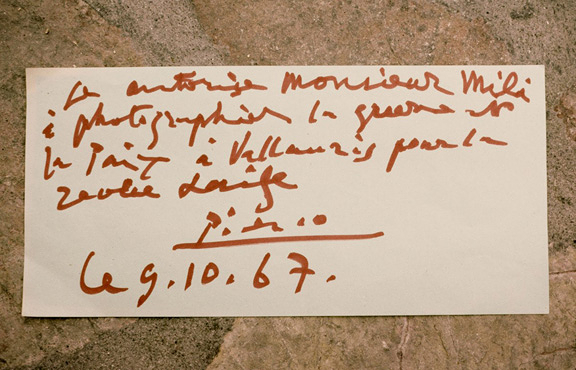 Je autorise Monsieur Mili
à photographier la guerre et
la Paix à Vallauris pour la
revue Laife
Picasso
Le 9.10.67.